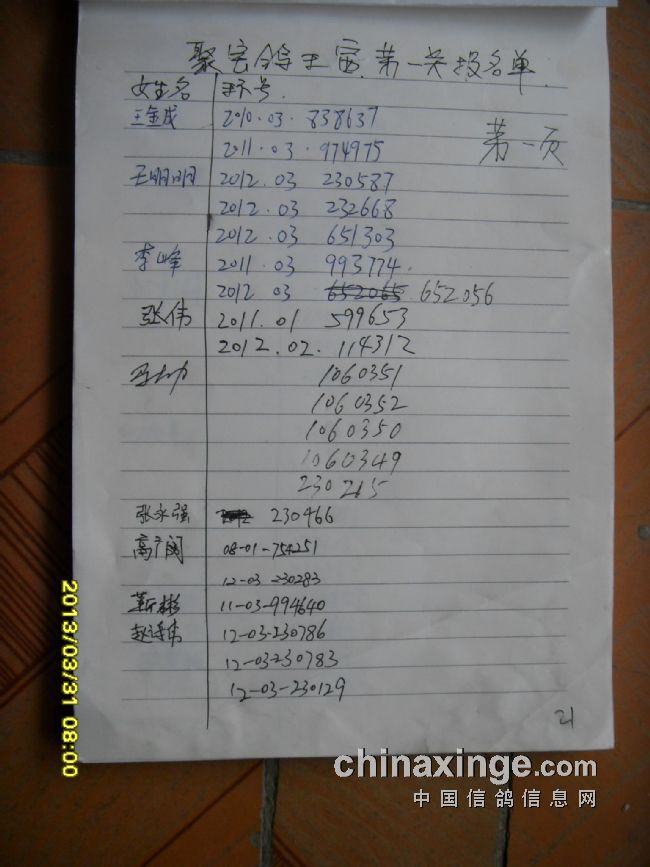 聚宝鸽王赛第一关报名单
姓名 环号
第一页
王金成 2010.03.838637
2011.03.974975
王明明 2012.03 230587
2012.03 232668
2012.03 651303
李峰 2011.03 993774
2012 03 652065 652056
张伟 2011.01 599653
2012.02.114312
1060351
1060352
1060350
1060349
230215
张永强 230466
高广阔 08-01-754251
12-03-230283
靳彬 11-03-994640
12-03-230786
12-03-230783
12-03-230129
21
2013/03/31 08:00
chinaxinge.com
中国信鸽信息网